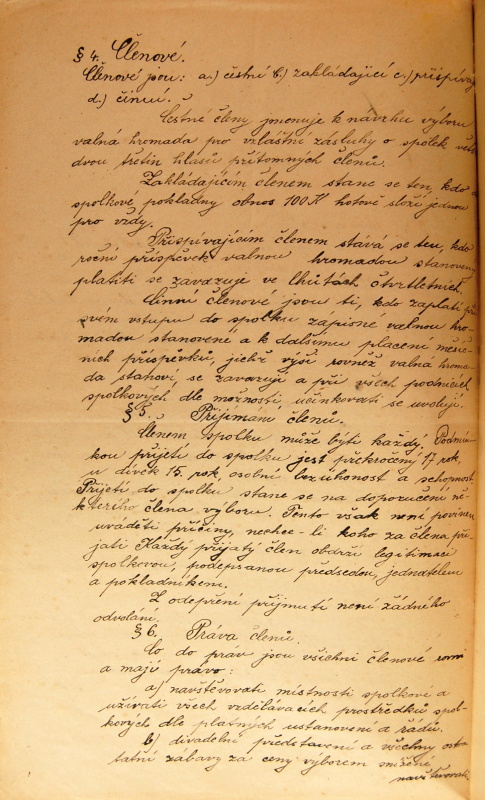 § 4. Členové.
Členové jsou: a.) čestní b.) zakládající c.) přispívaj
d.) činní.
Čestné členy jmenuje k návrhu výboru
valná hromada pro vzláštní zásluhy o spolek vět
dvou třetin hlasů přítomných členů.
Zakládajícím členem stane se ten, kdo
spolkové pokladny obnos 100 K hotově složí jednou
pro vždy.
Přispívajícím členem stává se ten, kdo
roční příspěvek valnou hromadou stanovený
platiti se zavazuje ve lhůtách čtvrtletních.
Činní členové jsou ti, kdo zaplatí při
svém vstupu do spolku zápisné valnou hro-
madou stanovené a k dalšímu placení měsíč-
ních příspěvků, jichž výši rovněž valná hroma-
da stanoví, se zavazuje a při všech podnicích
spolkových dle možnosti účinkovati se uvolují.
§ 5. Přijímání členů.
Členem spolku může býti každý. Podmín-
kou přijetí do spolku jest překročený 17 rok,
u dívek 15. rok, osobní bezúhonost a schopnost.
Přijetí do spolku, stane se na doporučení ně-
kterého člena výboru. Tento však není povinen
uváděti příčiny, nechce-li koho za člena při-
jati Každý přijatý člen obdrží legitimaci
spolkovou, podepsanou předsedou, jednatelem
a pokladníkem.
Z odepření přijmutí není žádného
odvolání.
§ 6. Práva členů.
Co do prav jsou všichni členové rovni
a mají právo:
a) navštěvovati místnosti spolkové a
užívati všech vzdělávacích prostředků spol-
kových dle platných ustanovení a řádů.
b) divadelní představení a všechny osta
tatní zábavy za ceny výborem snížené
navštěvovati